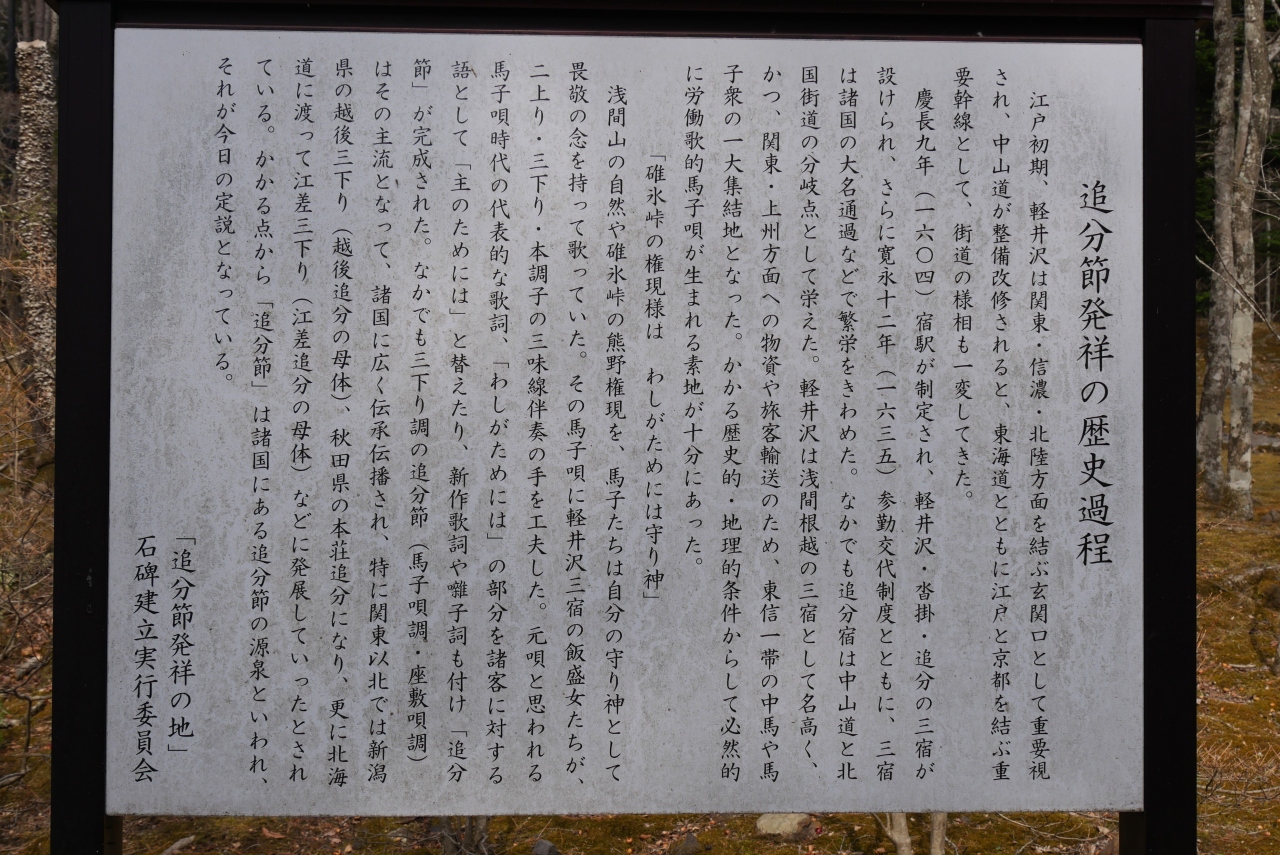 追分節発祥の歴史過程
江戸初期、軽井沢は関東・信濃・北陸方面を結ぶ玄関口として重要視
され、中山道が整備改修されると、東海道とともに江戸と京都を結ぶ重
要幹線として、街道の様相も一変してきた。
慶長九年（一六〇四）宿駅が制定され、軽井沢・沓掛・追分の三宿が
設けられ、さらに寛永十二年（一六三五）参勤交代制度とともに、三宿
は諸国の大名通過などで繁栄をきわめた。なかでも追分宿は中山道と北
国街道の分岐点として栄えた。軽井沢は浅間根越の三宿として名高く、
かつ、関東・上州方面への物資や旅客輸送のため、東信一帯の中馬や馬
子衆の一大集結地となった。かかる歴史的・地理的条件からして必然的
に労働歌的馬子唄が生まれる素地が十分にあった。
「碓氷峠の権現様は　わしがためには守り神」
浅間山の自然や碓氷峠の熊野権現を、馬子たちは自分の守り神として
畏敬の念を持って歌っていた。その馬子唄に軽井沢三宿の飯盛女たちが、
二上り・三下り・本調子の三味線伴奏の手を工夫した。元唄と思われる
馬子唄時代の代表的な歌詞、「わしがためには」の部分を諸客に対する
語として「主のためには」と替えたり、新作歌詞や囃子詞も付け「追分
節」が完成された。なかでも三下り調の追分節（馬子唄調・座敷唄調）
はその主流となって、諸国に広く伝承伝播され、特に関東以北では新潟
県の越後三下り（越後追分の母体）、秋田県の本荘追分になり、更に北海
道に渡って江差三下り（江差追分の母体）などに発展していったとされ
ている。かかる点から「追分節」は諸国にある追分節の源泉といわれ、
それが今日の定説となっている。
「追分節発祥の地」
石碑建立実行委員会